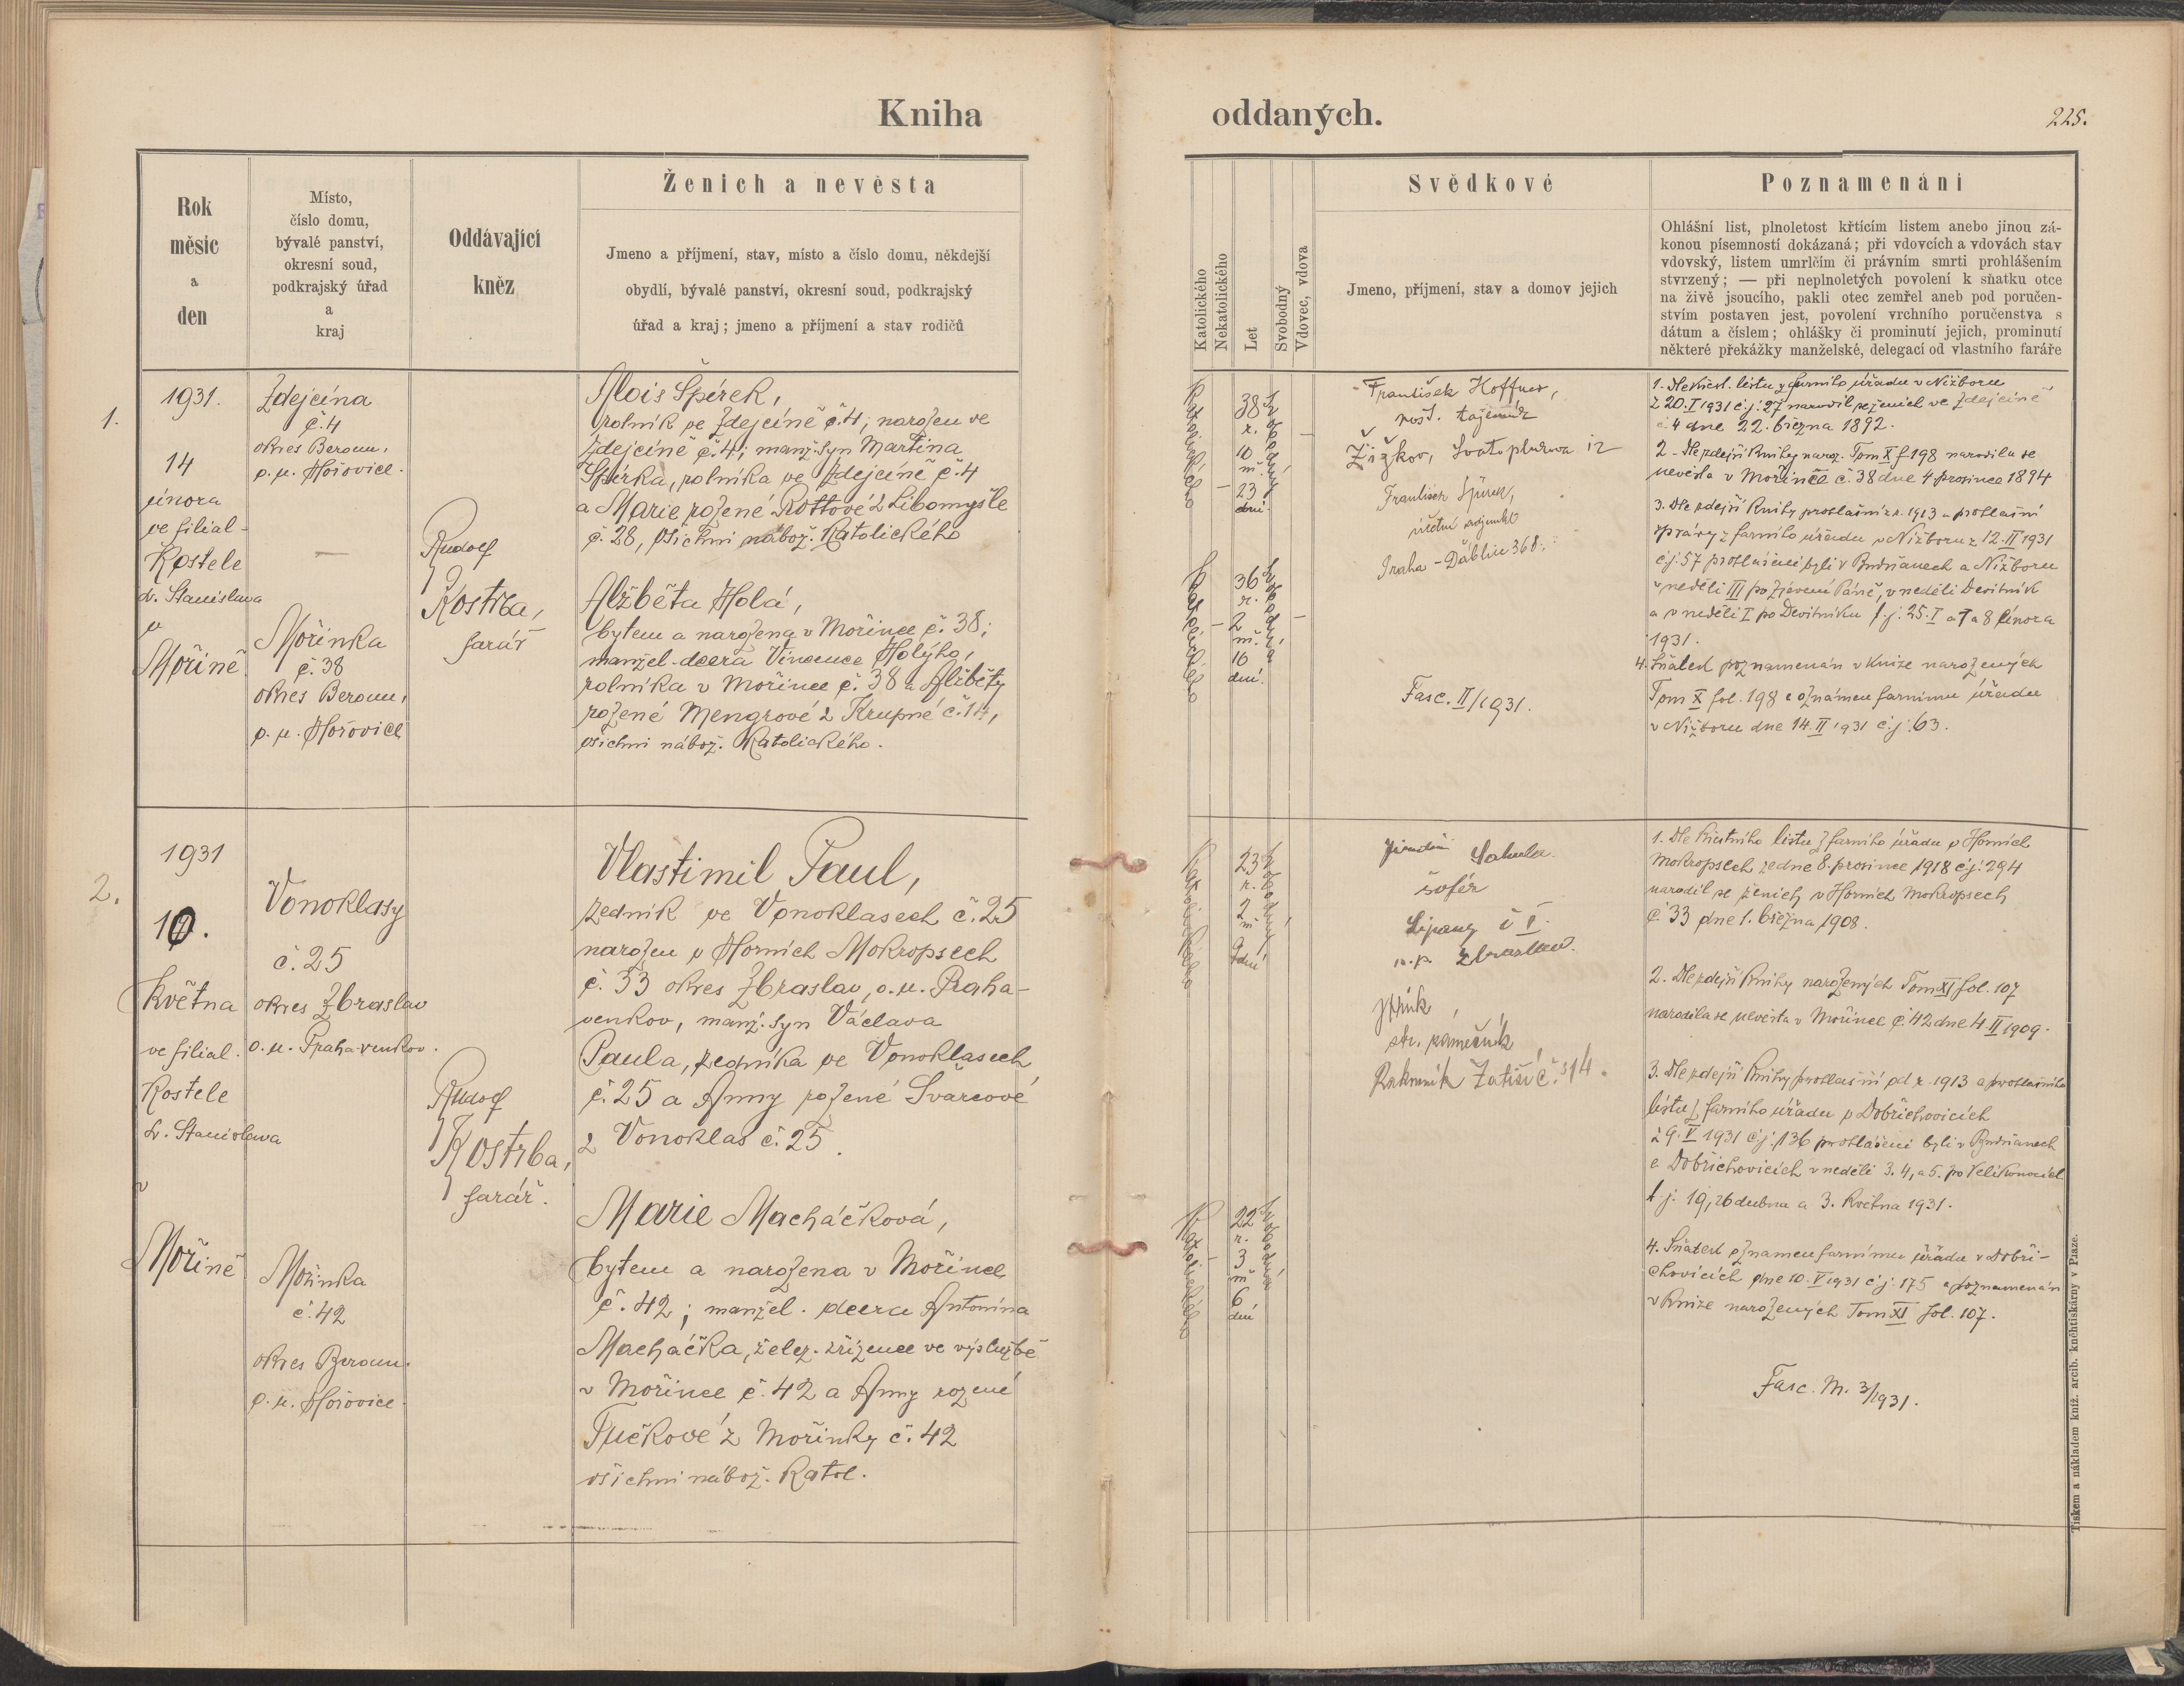 Kniha oddaných.
225.
Rok
měsíc
a
den
Místo,
číslo domu,
bývalé panství,
okresní soud,
podkrajský úřad
a
kraj
Oddávající
kněz
Ženich a nevěsta
Jmeno a příjmení, stav, místo a číslo domu, někdejší
obydlí, bývalé panství, okresní soud, podkrajský
úřad a kraj; jmeno a příjmení a stav rodičů
Katolického
Nekatolického
Let
Svobodný
Vdovec, vdova
Svědkové
Jmeno, příjmení, stav a domov jejich
Poznamenání
Ohlášní list, plnoletost křtícím listem anebo jinou zá-
konou písemností dokázaná; při vdovcích a vdovách stav
vdovský, listem umrlčím či právním smrti prohlášením
stvrzený; — při neplnoletých povolení k sňatku otce
na živě jsoucího, pakli otec zemřel aneb pod poručen-
stvím postaven jest, povolení vrchního poručenstva s
dátum a číslem; ohlášky či prominutí jejich, prominutí
některé překážky manželské, delegací od vlastního faráře
1.
1931.
14
února
ve filial-
Kostele
sv. Stanislava
v
Mořině
Zdejcina
č. 4
okres Beroun,
o. u. Hořovice.
Mořinka
č. 38
okres Beroun,
o. u. Hořovice
Rudolf
Kostrba,
farář
Alois Špírek,
rolník ve Zdejcině č. 4; narozen ve
Zdejcině č. 4; manž. syn Martina
Špírka, rolníka ve Zdejcině č. 4
a Marie rozené Rottové z Libomyšle
č. 28, všichni nábož. Katolického
Alžběta Holá,
bytem a narozena v Mořince č. 38;
manžel. dcera Vincence Holýho,
rolníka v Mořince č. 38 a Alžběty
rozené Mengrové z Krupné č. 14,
všichni nábož. Katolického.
Katolického
38
r.
10
m.
23
dní.
Katolického
36
r.
2
m.
10
dní.
František Hoffner,
pošt. tajemník
Žižkov, Svatoplukova 12
František Špírek,
účetní adjunkt
Praha - Ďáblice 368.
Fasc. II/1931.
1. Dle křest. listu z farního úřadu v Nižboru
z 20. I 1931 č. j. 27 narodil se ženich ve Zdejcině
č. 4 dne 22. března 1892.
2. Dle zdejší Knihy naroz. Tom X f 198 narodila se
nevěsta v Mořince č. 38 dne 4 prosince 1894
3. Dle zdejší Knihy prohlášní z r. 1913 a prohlášní
zprávy z farního úřadu v Nižboru z 12. II 1931
č. j. 57 prohlášeni byli v Budňanech a Nižboru
v neděli III po Zjevení Páně, v neděli Devítník
a v neděli I po Devítníku t. j. 25. I a 1 a 8 února
1931.
4. Sňatek poznamenán v Knize narozených
Tom X fol. 198 a oznámen farnímu úřadu
v Nižboru dne 14. II 1931 č. j. 63.
2.
1931
10.
Května
ve filial.
Kostele
sv. Stanislava
v
Mořině
Vonoklasy
č. 25
okres Zbraslav
o. u. Praha-venkov.
Mořinka
č. 42
okres Beroun.
o. u. Hořovice.
Rudolf
Kostrba,
farář.
Vlastimil Paul,
zedník ve Vonoklasech č. 25
narozen v Horních Mokropsech
č. 33 okres Zbraslav, o. u. Praha-
venkov, manž. syn Václava
Paula, zedníka ve Vonoklasech
č. 25 a Anny rozené Švarcové
z Vonoklas č. 25.
Marie Macháčková,
bytem a narozena v Mořince
č. 42; manžel. dcera Antonína
Macháčka, želez. zřízence ve výslužbě
v Mořince č. 42 a Anny rozené
Tučkové z Mořinky č. 42
všichni nábož. Katol.
Katolického
23
r.
2
m
9
dní
Katolického
22
r.
3
m
6
dní
Sahula.
šofér
Lipany č
n. p. Zbraslav.
Rakovník Zátiší č. 514.
1. Dle Křestního listu z farního úřadu v Horních
Mokropsech ze dne 8. prosince 1918 č. j. 294
narodil se ženich v Horních Mokropsech
č. 33 dne 1. března 1908.
2. Dle zdejší Knihy narozených Tom XI fol. 107
narodila se nevěsta v Mořince č. 42 dne 4. II 1909.
3. Dle zdejší Knihy prohlášní od r. 1913 a prohlášního
listu z farního úřadu v Dobřichovicích
z 9. V 1931 č. j. 136 prohlášeni byli v Budňanech
a Dobřichovicích v neděli 3. 4, a 5. po Velikonocích
t. j. 19, 26 dubna a 3. Května 1931.
4. Sňatek oznámen farnímu úřadu v Dobři-
chovicích dne 10. V 1931 č. j. 175 a poznamenán
v Knize narozených Tom XI fol. 107.
Fasc. M. 3/1931.
Tiskem a nákladem kníž. arcib. kněhtiskárny v Praze.